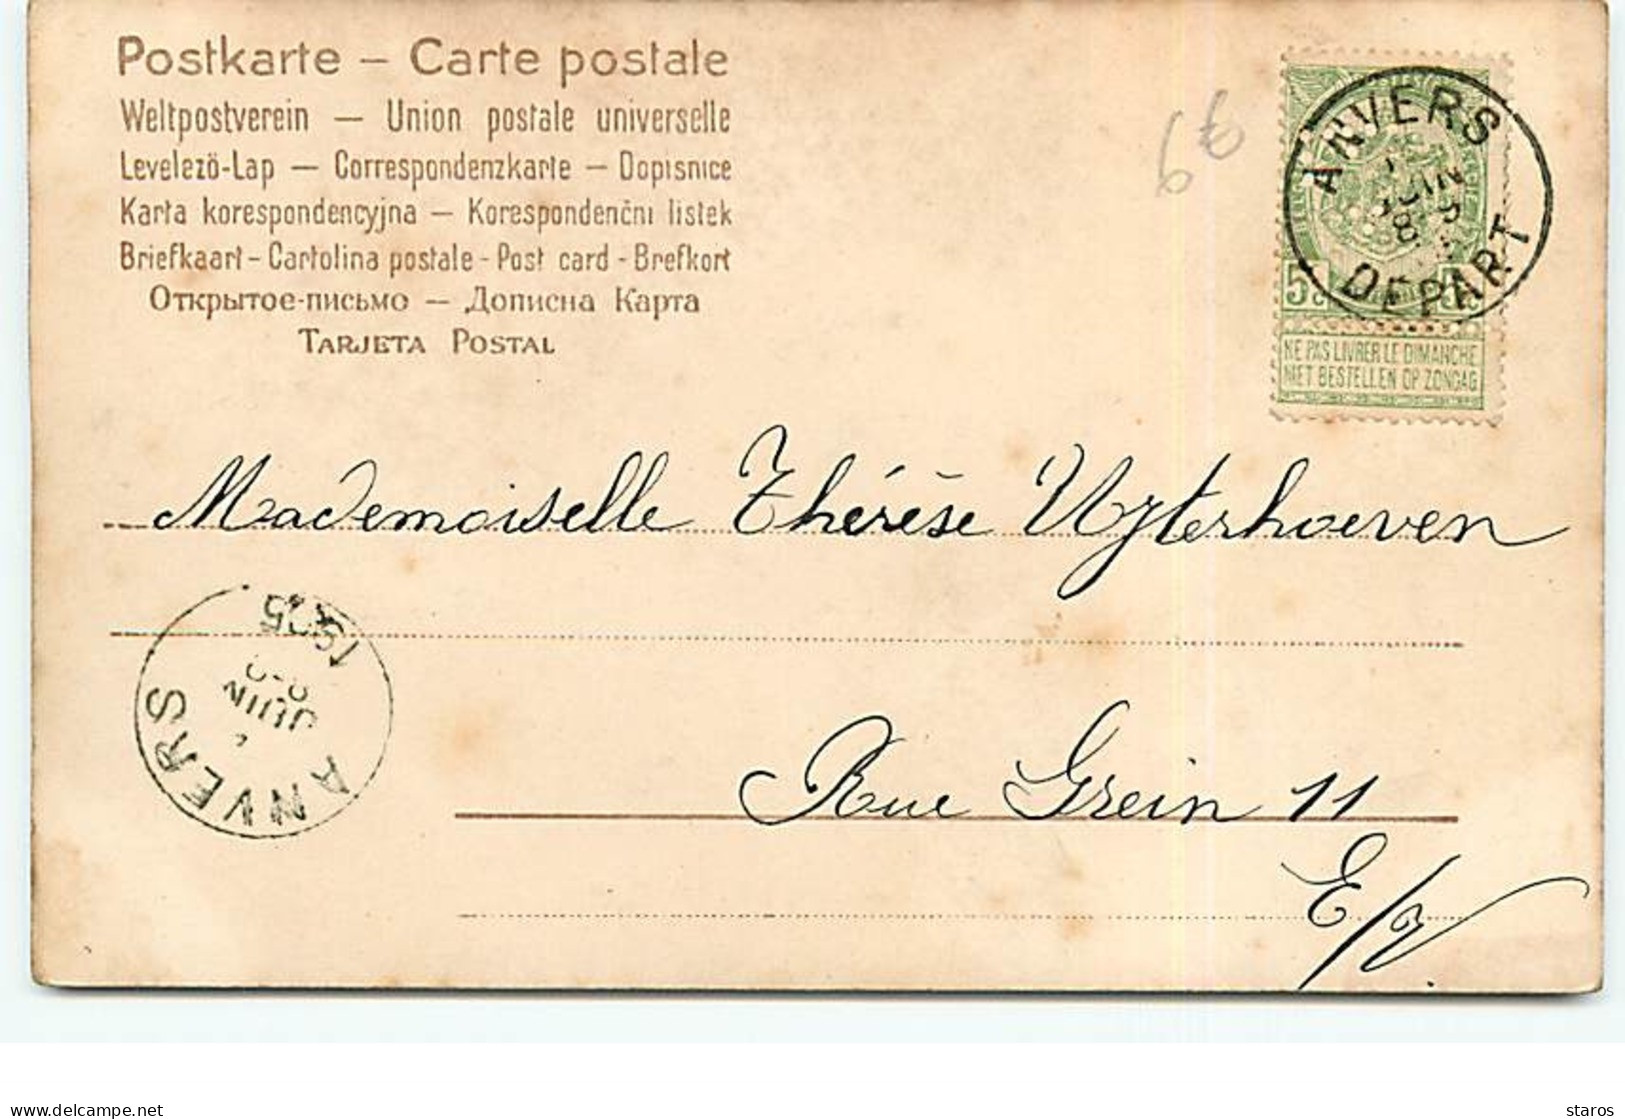 Postkarte – Carte postale
Weltpostverein – Union postale universelle
Levelező-Lap – Correspondenzkarte – Dopisnice
Karta korespondencyjna – Korespondenčni listek
Briefkaart - Cartolina postale - Post card - Brefkort
Открытое-письмо – Дописна Карта
TARJETA POSTAL
6€
ANVERS
JUIN
DEPART
NE PAS LIVRER LE DIMANCHE
NIET BESTELLEN OP ZONDAG
Mademoiselle Thérèse Uyterhoeven
1905
JUIN
ANVERS
Rue Grein 11
E/V.
staros